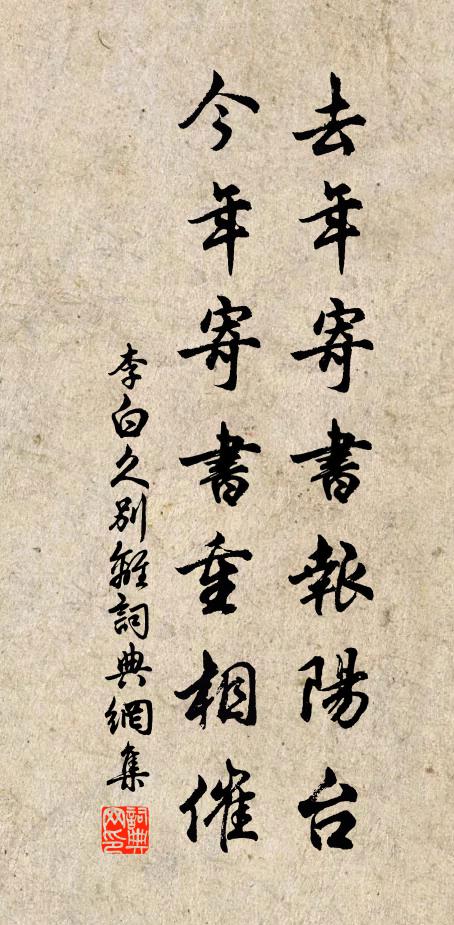 去年寄書報陽台
今年寄書重相催
李白久別離詞典網集
詞典网印